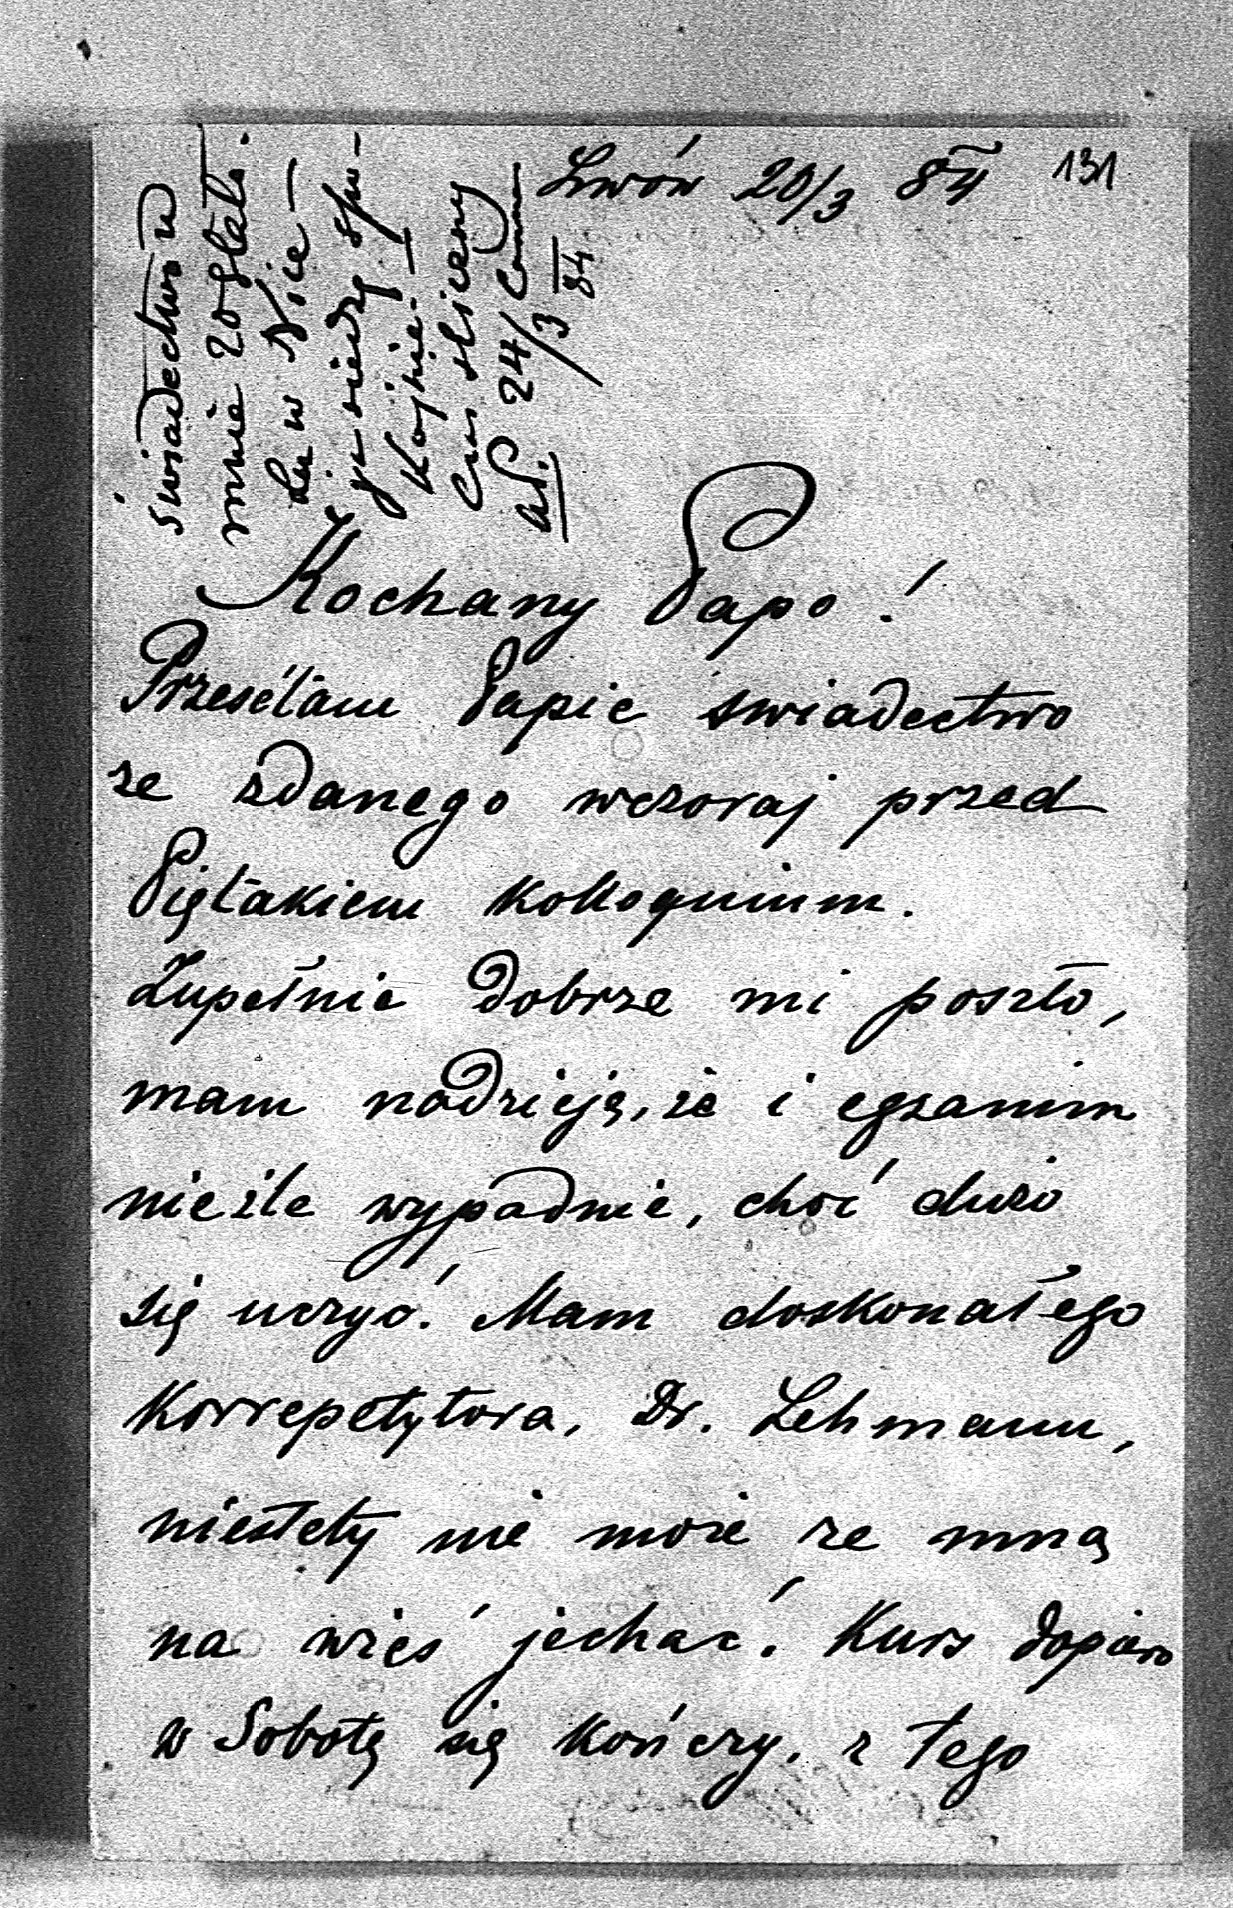 Lwów 20/3 84
131
świadectwo u
mnie zostało.
w Nice
siedzą spo-
kojnie.
Czas śliczny
24/3
84
Kochany Papo!
Przesełam Papie świadectwo
ze zdanego wczoraj przed
Piętakiem kolloguium.
Zupełnie dobrze mi poszło,
mam nadzieję, że i egzamin
nieźle wypadnie, choć dużo
się uczyć. Mam doskonałego
Korrepetytora, Dr. Lehmann,
niestety nie może ze mną
na wieś jechać. Kurs dopiero
w Sobotę się kończy. z tego